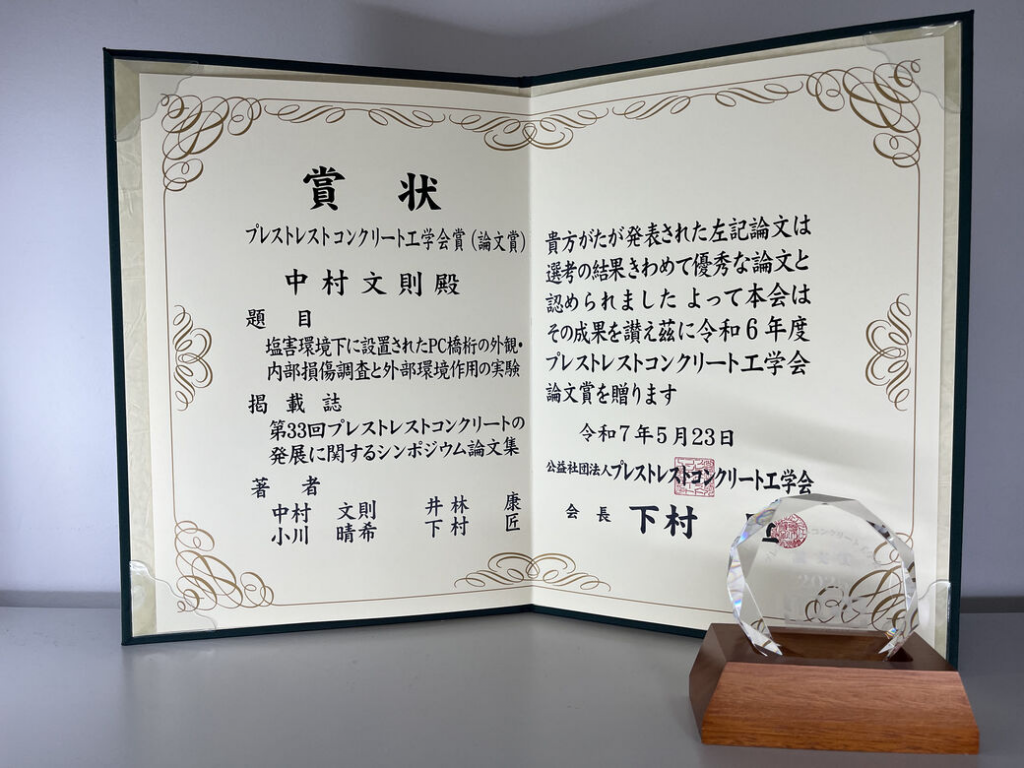 賞 状
プレストレストコンクリート工学会賞(論文賞)
中村文則殿
題 目
塩害環境下に設置されたPC橋桁の外観・
内部損傷調査と外部環境作用の実験
掲 載 誌
第33回プレストレストコンクリートの
発展に関するシンポジウム論文集
著 者
中村 文則 井林 康
小川 晴希 下村 匠
貴方がたが発表された左記論文は
選考の結果きわめて優秀な論文と
認められました よって本会は
その成果を讃え茲に令和6年度
プレストレストコンクリート工学会
論文賞を贈ります
令和7年5月23日
公益社団法人プレストレストコンクリート工学会
会 長 下村